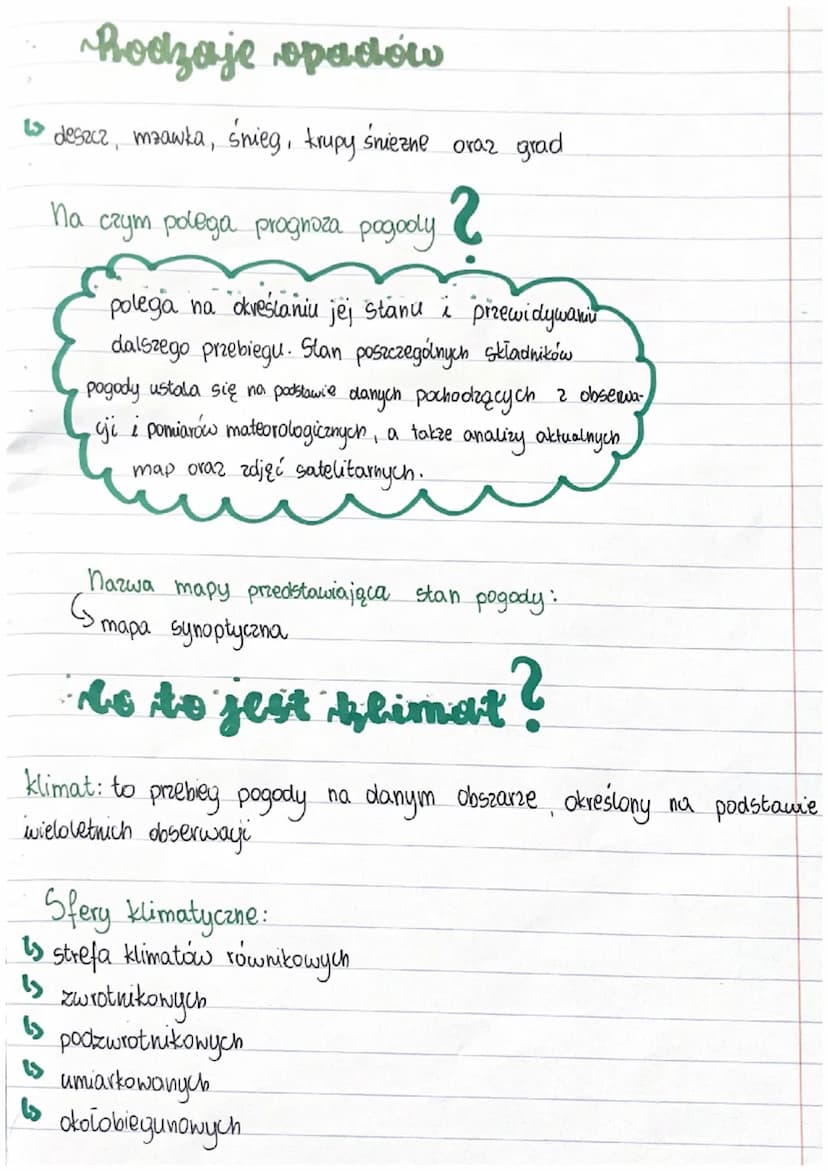 Rodzaje opadów
deszcz, mżawka, śnieg, krupy śnieżne oraz grad
Na czym polega prognoza pogody?
polega na określaniu jej stanu i przewidywaniu
dalszego przebiegu. Stan poszczególnych składników
pogody ustala się na podstawie danych pochodzących z obserwa-
cji i pomiarów mateorologicznych, a także analizy aktualnych
map oraz zdjęć satelitarnych.
Nazwa mapy przedstawiająca stan pogody:
mapa synoptyczna
Co to jest klimat?
klimat: to przebieg pogody na danym obszarze, określony na podstawie
wieloletnich obserwacji
Sfery klimatyczne:
strefa klimatów równikowych
zwrotnikowych
podzwrotnikowych
umiarkowanych
okołobiegunowych